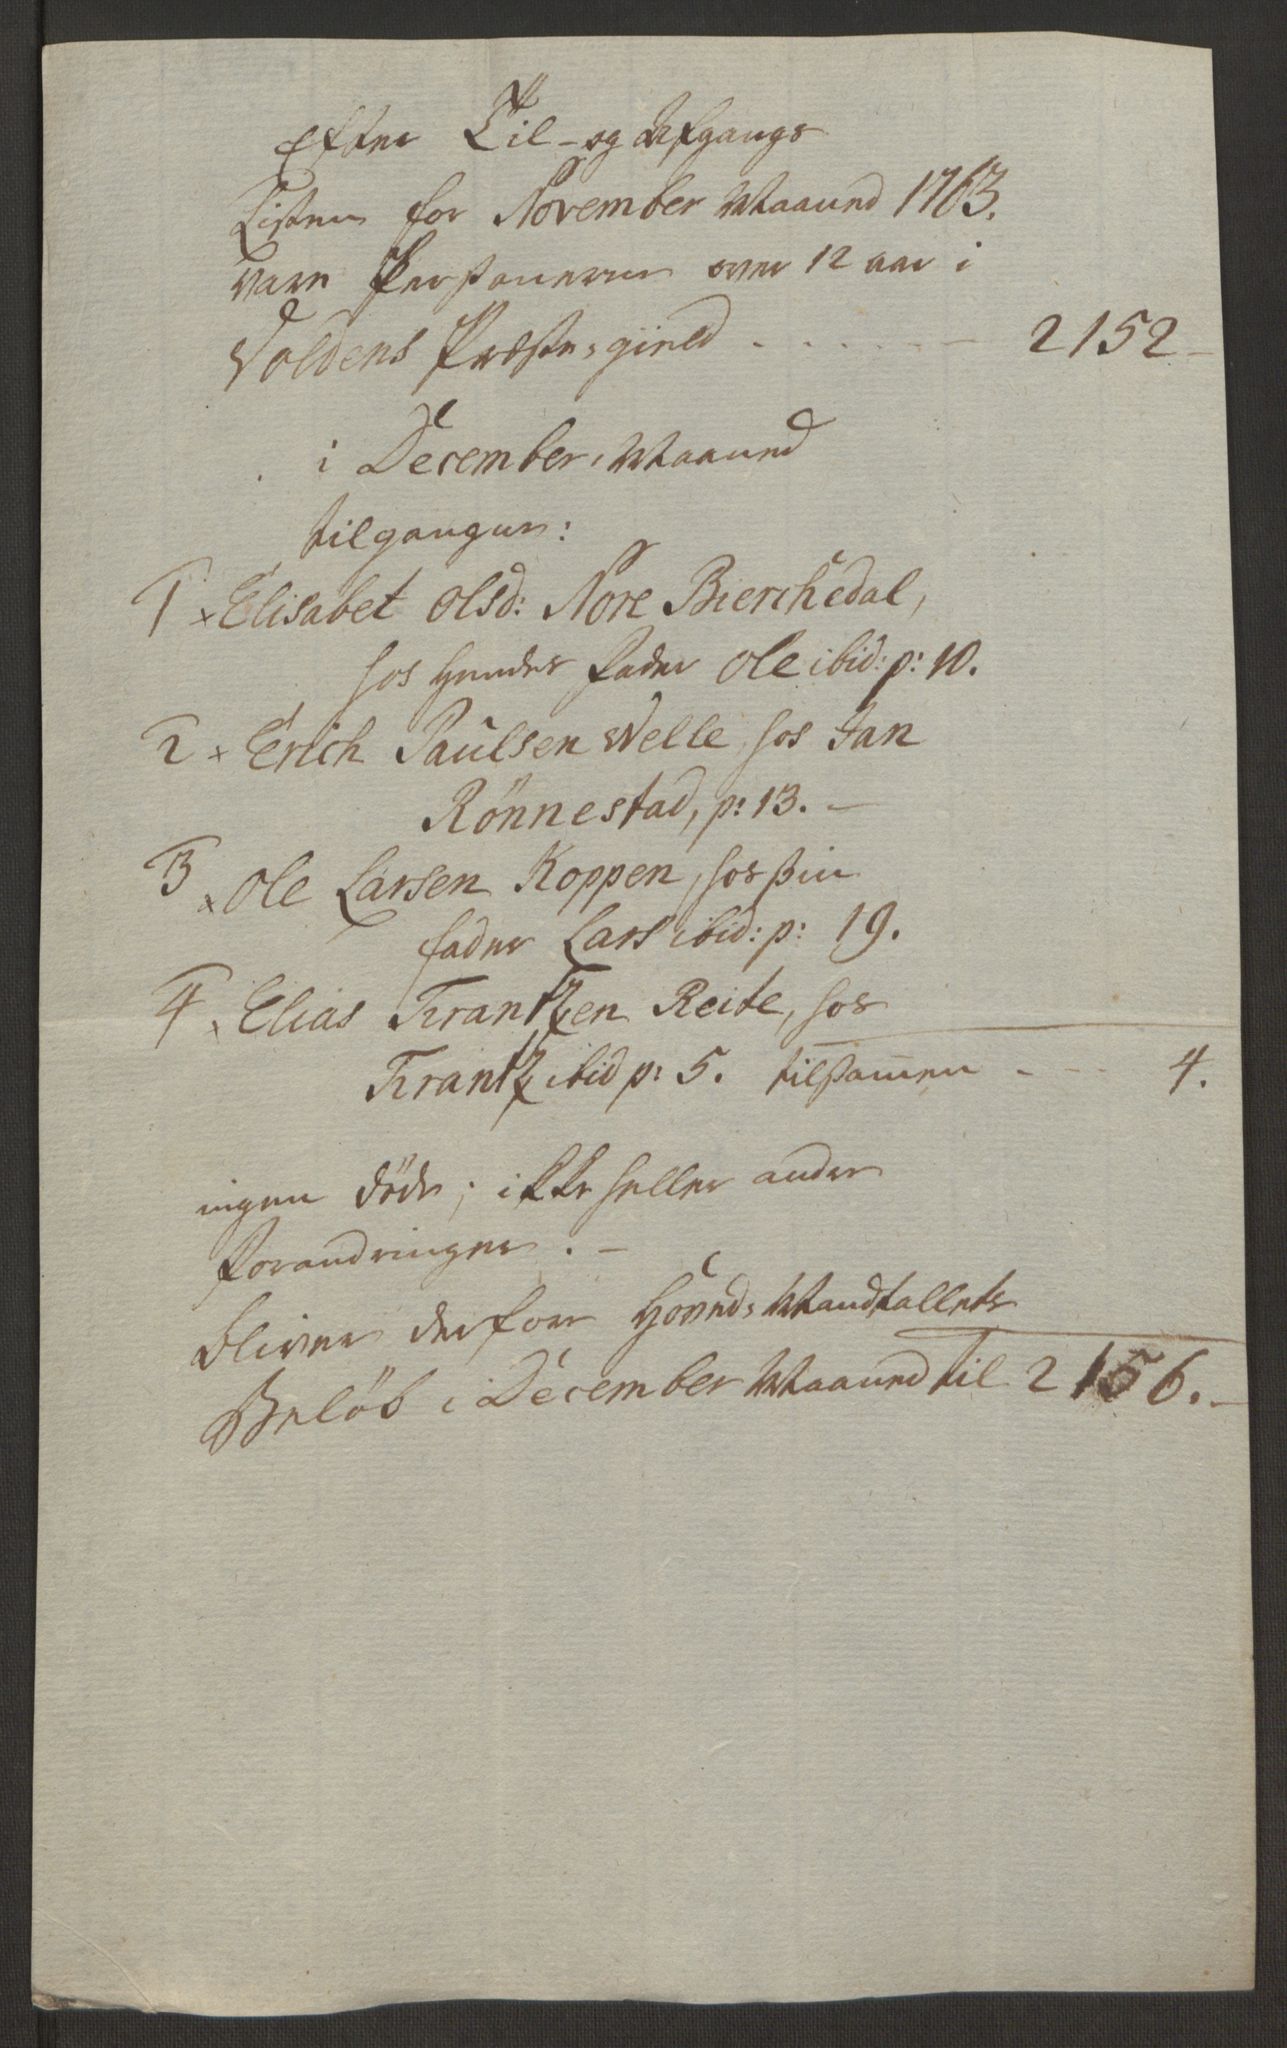 Efter Til- og Afgangs
Listen for November Maaned 1763.
vare Personerne over 12 aar i
Voldens Præste-gield - - - - - - 2152 -
i December-Maaned
tilgangne:
1 x Elisabet Olsd: Nore Bierchedal,
hos hendes Fader Ole ibid: p: 10.
2 x Erich Paulsen Welle, hos Jan
Rönnestad, p: 13. -
3 x Ole Larsen Koppen, hos sin
fader Lars ibid: p: 19.
4 x Elias Krantzen Reite, hos
Krantz ibid p: 5. tilsam̅en - - - 4.
ingen døde; ikke heller andre
Forandringer. -
bliver derfore Hoved-Mandtallets
Beløb i December Maaned til 2156. -